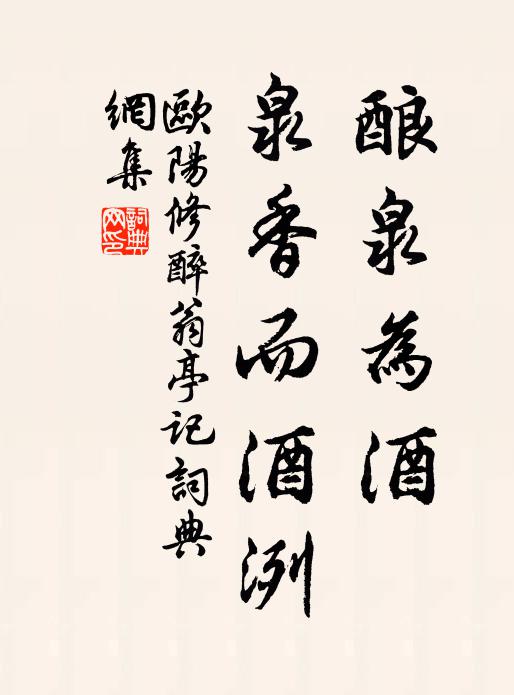 酿泉為酒
泉香而酒洌
歐陽修醉翁亭記詞典
網集
詞典
网印